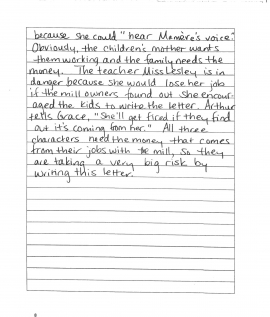 because she could "hear Mamère's voice."
Obviously, the children's mother wants
them working and the family needs the
money. The teacher Miss Lesley is in
danger because she would lose her job
if the mill owners found out she encour-
aged the kids to write the letter. Arthur
tells Grace, "She'll get fired if they find
out it's coming from her." All three
characters need the money that comes
from their jobs with the mill, so they
are taking a very big risk by
writing this letter.